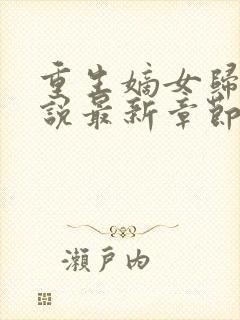 重生嫡女歸
說最新章節
瀨戶內